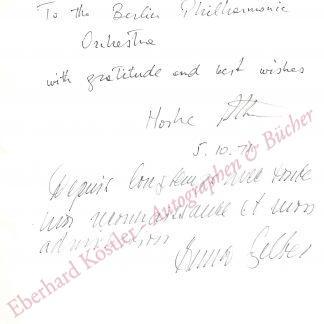 To the Berlin Philharmonic
Orchestra
with gratitude and best wishes
Moshe
5.10.
Depuis longtemps avec toute
ma reconnaissance et mon
admiration
Bruno Gelber
Eberhard Köstler - Autographen & Bücher